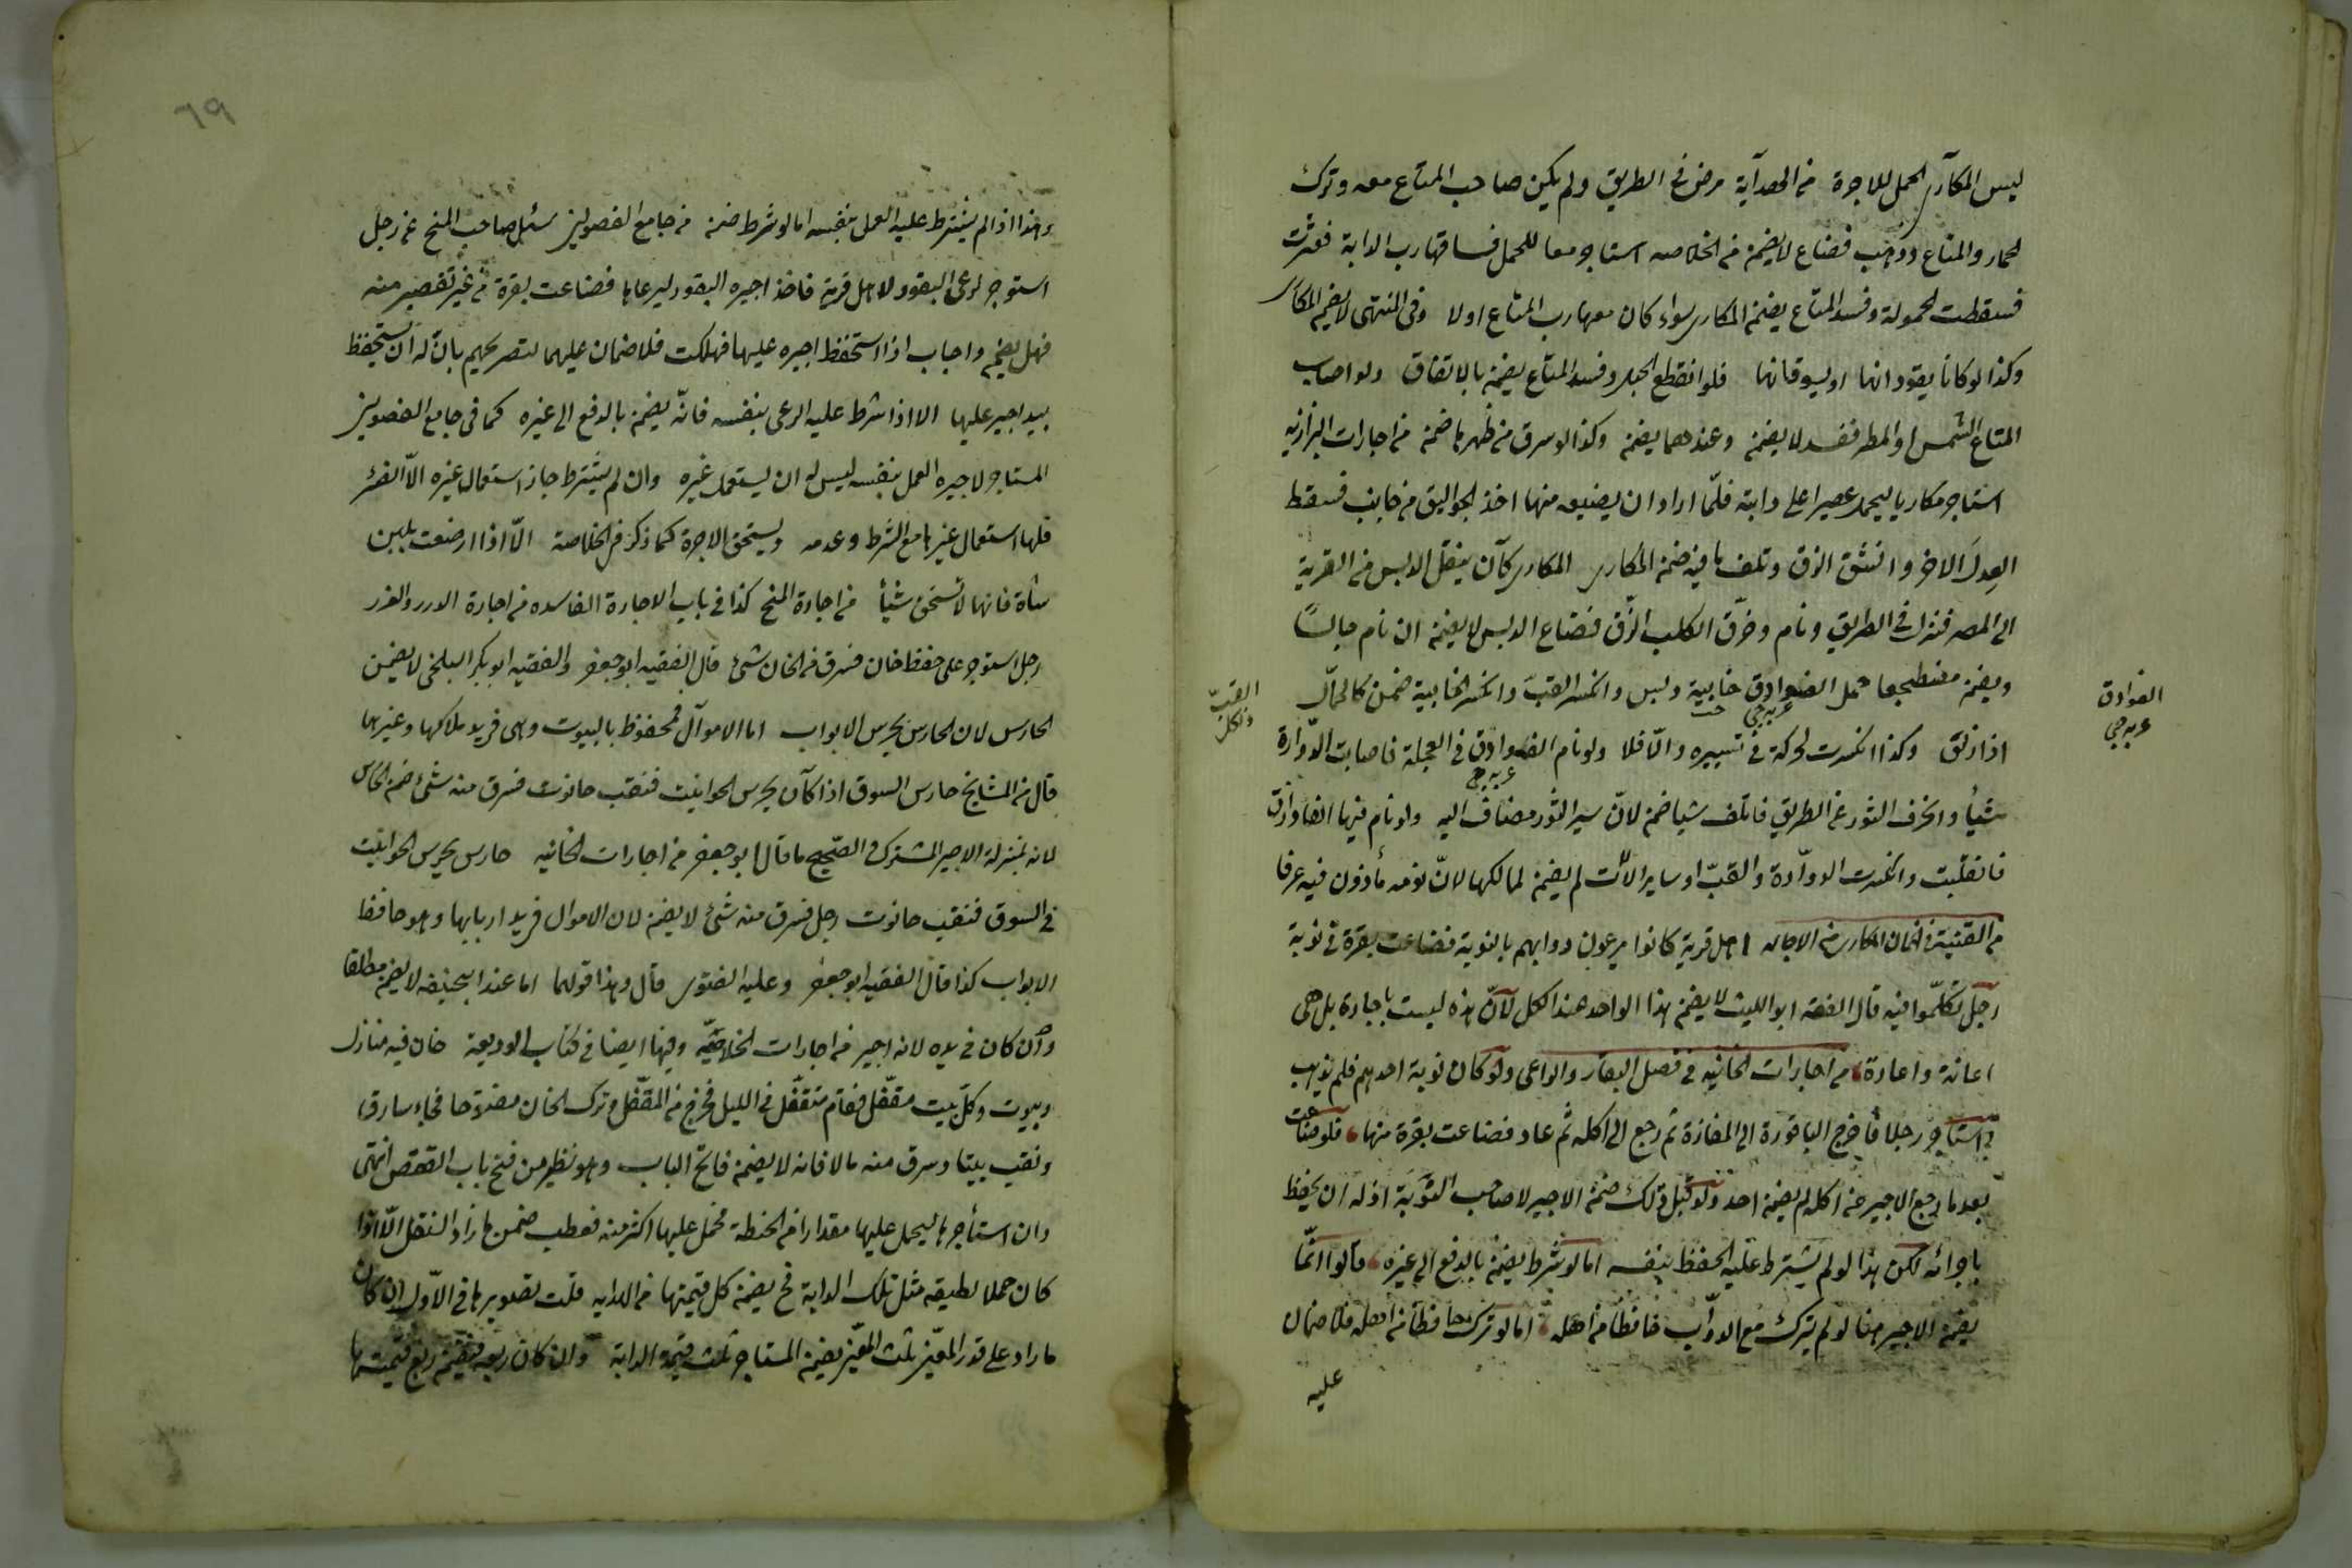 ليس للمكاري الحمل للاجرة من الهداية مرض في الطريق ولم يكن صاحب المتاع معه وترك
الحمار والمتاع وذهب فضاع لا يضمن من الخلاصه استأجر معا للحمل فساقها رب الدابة فعثرت
فسقطت الحمولة وفسد المتاع يضمن المكاري سواء كان معها رب المتاع اولا وفى المنتهى لا يضمن المكاري
وكذا لو كانا يقودانها او يسوقانها فلو انقطع الحبل وفسد المتاع يضمن بالاتفاق ولو اصاب
المتاع الشمس او المطر ففسد لا يضمن وعندهما يضمن وكذا لو سرق من ظهرها ضمن من اجارات البزازيه
استاجر مكاريا ليحمل عصيرا على دابته فلمّا اراد ان يضعه منها اخذ الجواليق من جانب فسقط
العِدل الاخر وانشق الزق وتلف ما فيه ضمن المكاري المكاري كان ينقل الدبس من القرية
الى المصر فنزل في الطريق ونام وخرّق الكلب الزّق فضاع الدبس لا يضمن ان نام جالسًا
ويضمن مضطجعا حمل الفوادق خابية دبس وانكسر القبّ وانكسر الخابية ضمن كالحمّال
الفوادق
عربه جي
القبّ
اذا زلق وكذا انكسرت لحركة في تسييره والّا فلا ولو نام الفوادق في العجلة فاصابت الدوّارة
عربه جي
شيأ وانحرف الثور عن الطريق فاتلف شيا ضمن لانّ سير الثور مضاف اليه ولو نام فيها الفوادق
فانقلبت وانكسرت الدوّارة والقبّ او ساير الآلات لم يضمن لمالكها لانّ نومه مأذون فيه عرفا
من القنية في ضمان المكاري من الاجاره اهل قرية كانوا يرعون دوابهم بالنوبة فضاعت بقرة في نوبة
رجل تكلّموا فيه قال الفقيه ابو الليث لا يضمن هذا الواحد عند الكل لانّ هذه ليست باجارة بل هى
اعانة واعارة من اجارات الخانيه في فصل البقار والراعى ولو كان نوبة احدهم فلم يذهب
واستاجر رجلا فأخرج الباقورة الى المفازة ثم رجع الى اكله ثم عاد فضاعت بقرة منها فلو ضاعت
بعد ما رجع الاجير من اكله لم يضمن احد ولو قبل ذلك ضمن الاجير لا صاحب النوبة اذ له ان يحفظ
باجرائه لكن هذا لو لم يشترط عليه الحفظ بنفسه اما لو شرط يضمن بالدفع الى غيره قالوا انّما
يضمن الاجير هنا لو لم يترك مع الدوابّ حافظا من اهله امّا لو ترك حافظا من اهله فلا ضمان
عليه
٦٩
وهذا اذا لم يشترط عليه العمل بنفسه اما لو شرط ضمن من جامع الفصولين سئل صاحب المنح عن رجل
استوجر لرعى البقور لاهل قرية فاخذ اجيره البقور ليرعاها فضاعت بقرة من غير تقصير منه
فهل يضمن واجاب اذا استحفظ اجيره عليها فهلكت فلا ضمان عليهما لتصريحهم بانّ له ان يستحفظ
بيد اجير عليها الا اذا شرط عليه الرعى بنفسه فانّه يضمن بالدفع الى غيره كما فى جامع الفصولين
المستاجر لاجيره العمل بنفسه ليس له ان يستعمل غيره وان لم يشترط جاز استعمال غيره الّا الظئر
فلها استعمال غيرها مع الشرط وعدمه ويستحق الاجرة كما ذكر في الخلاصة الّا اذا ارضعت بلبن
شاة فانها لا تستحق شيأ من اجارة المنح كذا في باب الاجارة الفاسده من اجارة الدرر والغرر
رجل استوجر على حفظ خان فسرق من الخان شئ قال الفقيه ابو جعفر والفقيه ابو بكر البلخى لا يضمن
الحارس لان الحارس يحرس الابواب اما الاموال محفوظ بالبيوت وهى في يد ملاكها وغيرها
قال من المشايخ حارس السوق اذا كان يحرس الحوانيت فنقب حانوت فسرق منه شئ ضمن الحارس
لانه بمنزلة الاجير المشترك والصّحيح ما قال ابو جعفر من اجارات الخانيه حارس يحرس الحوانيت
في السوق فنقب حانوت رجل فسرق منه شئ لا يضمن لان الاموال في يد اربابها وهو حافظ
الابواب كذا قال الفقيه ابو جعفر وعليه الفتوى قال وهذا قولهما اما عند ابيحنيفه لا يضمن مطلقا
وان كان في يده لانه اجير من اجارات الخلاصة وفيها ايضا في كتاب الوديعة خان فيه منازل
وبيوت وكلّ بيت مقفّل فقام متقفّل في الليل فخرج من المقفّل وترك الخان مفتوحا فجاء سارق
ونقب بيتا وسرق منه مالا فانه لا يضمن فاتح الباب وهو نظير من فتح باب القفص انتهى
وان استأجرها ليحمل عليها مقدارا من الحنطة فحمل عليها اكثر منه فعطب ضمن ما زاد الثقل الّا اذا
كان حملا لا يطيقه مثل تلك الدابة فح يضمن كل قيمتها من الهدايه قلت تصويرها في الاوّل ان كان
ما زاد على قدر المعيّن ثلث المعيّن يضمن المستاجر ثلث قيمة الدابة وان كان ربعه فيضمن ربع قيمتها